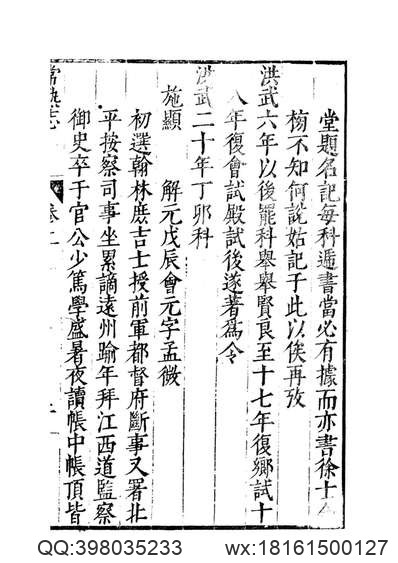 堂題名記每科遞書當必有據而亦書徐士
櫥不知何說姑記于此以俟再攷
洪武六年以後罷科舉舉賢良至十七年復鄉試十
八年復會試殿試後遂著為令
洪武二十年丁卯科
施顯 解元戊辰會元字孟微
初選翰林庶吉士授前軍都督府斷事又署北
平按察司事坐累謫遠州踰年拜江西道監察
御史卒于官公少篤學盛暑夜讀帳中帳頂皆
常熟志 卷二
QQ:398035233 wx:18161500127